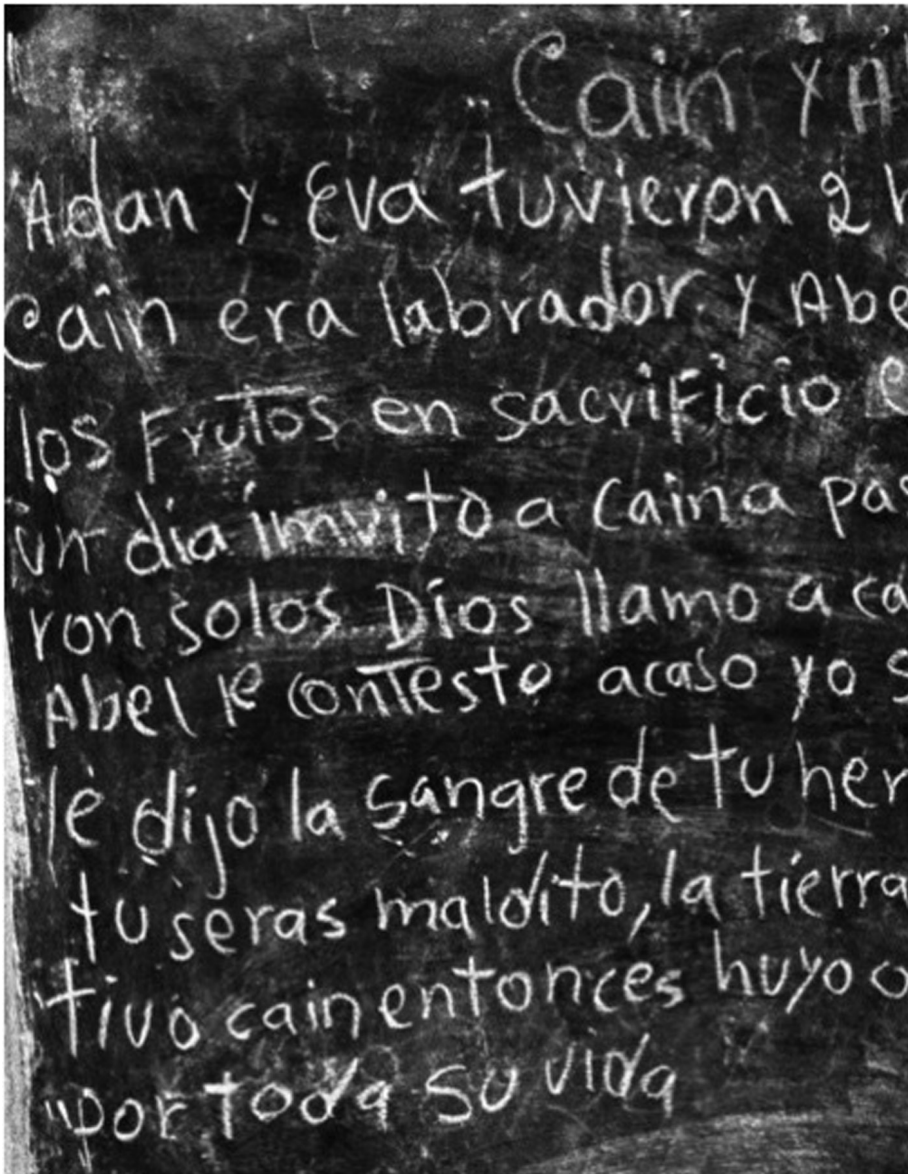 Cain y A
Adan y. Eva tuvieron 2 h
Cain era labrador y Abe
los Frutos en sacrificio e
un dia imvito a Cain a pas
ron solos Dios llamo a ca
Abel le contesto acaso yo s
le dijo la sangre de tu her
tu seras maldito, la tierra
tivo cain entonces huyo o
por toda su vida